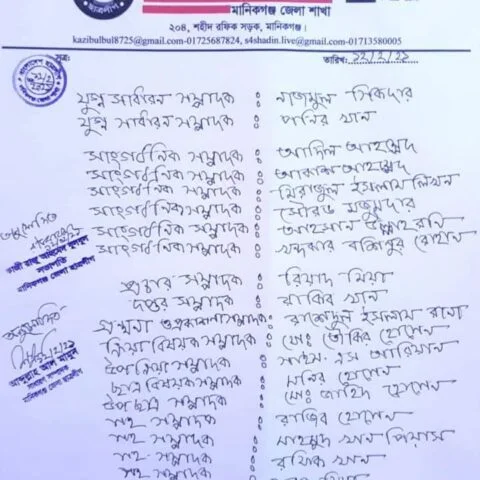 মানিকগঞ্জ জেলা শাখা
২০৪, শহীদ রফিক সড়ক, মানিকগঞ্জ।
kazibulbul8725@gmail.com-01725687824, s4shadin.live@gmail.com-01713580005
সূত্রঃ তারিখঃ ১২/২/২১
যুগ্ম সাধারন সম্পাদক ঃ নাজমুল সিকদার
যুগ্ম সাধারন সম্পাদক ঃ পানির খান
সাংগঠনিক সম্পাদক ঃ আদিল আহম্মেদ
সাংগঠনিক সম্পাদক ঃ আকাশ আহম্মেদ
সাংগঠনিক সম্পাদক ঃ মিরাজুল ইসলাম লিখন
সাংগঠনিক সম্পাদক ঃ সৌরভ মজুমদার
সাংগঠনিক সম্পাদক ঃ আহসান উল্লাহ রনি
সাংগঠনিক সম্পাদক ঃ খন্দকার বাশিপুর রোহান
অনুমোদিত
কাজী রাজু আহমেদ বুলবুল
সভাপতি
মানিকগঞ্জ জেলা ছাত্রলীগ
প্রচার সম্পাদক ঃ রিয়াদ মিয়া
দপ্তর সম্পাদক ঃ রাকিব খান
গ্রন্থনা ও প্রকাশনা সম্পাদক ঃ রাশেদুল ইসলাম রানা
ক্রিয়া বিষয়ক সম্পাদক ঃ মোঃ তৌকির হোসেন
উপ ক্রিয়া সম্পাদক ঃ আরিয়ান
ছাত্র বিষয়ক সম্পাদক ঃ মনির হোসেন
উপ ছাত্র সম্পাদক ঃ মোঃ জাহিদ হোসেন
অনুমোদিত
১২/২/২১
আব্দুল্লাহ আল মামুন
সাধারণ সম্পাদক
মানিকগঞ্জ জেলা ছাত্রলীগ
সহ সম্পাদক ঃ রাজিব হোসেন
সহ সম্পাদক ঃ মাহমুদ খান পিয়াস
সহ সম্পাদক ঃ রফিক খান
সহ সম্পাদক ঃ